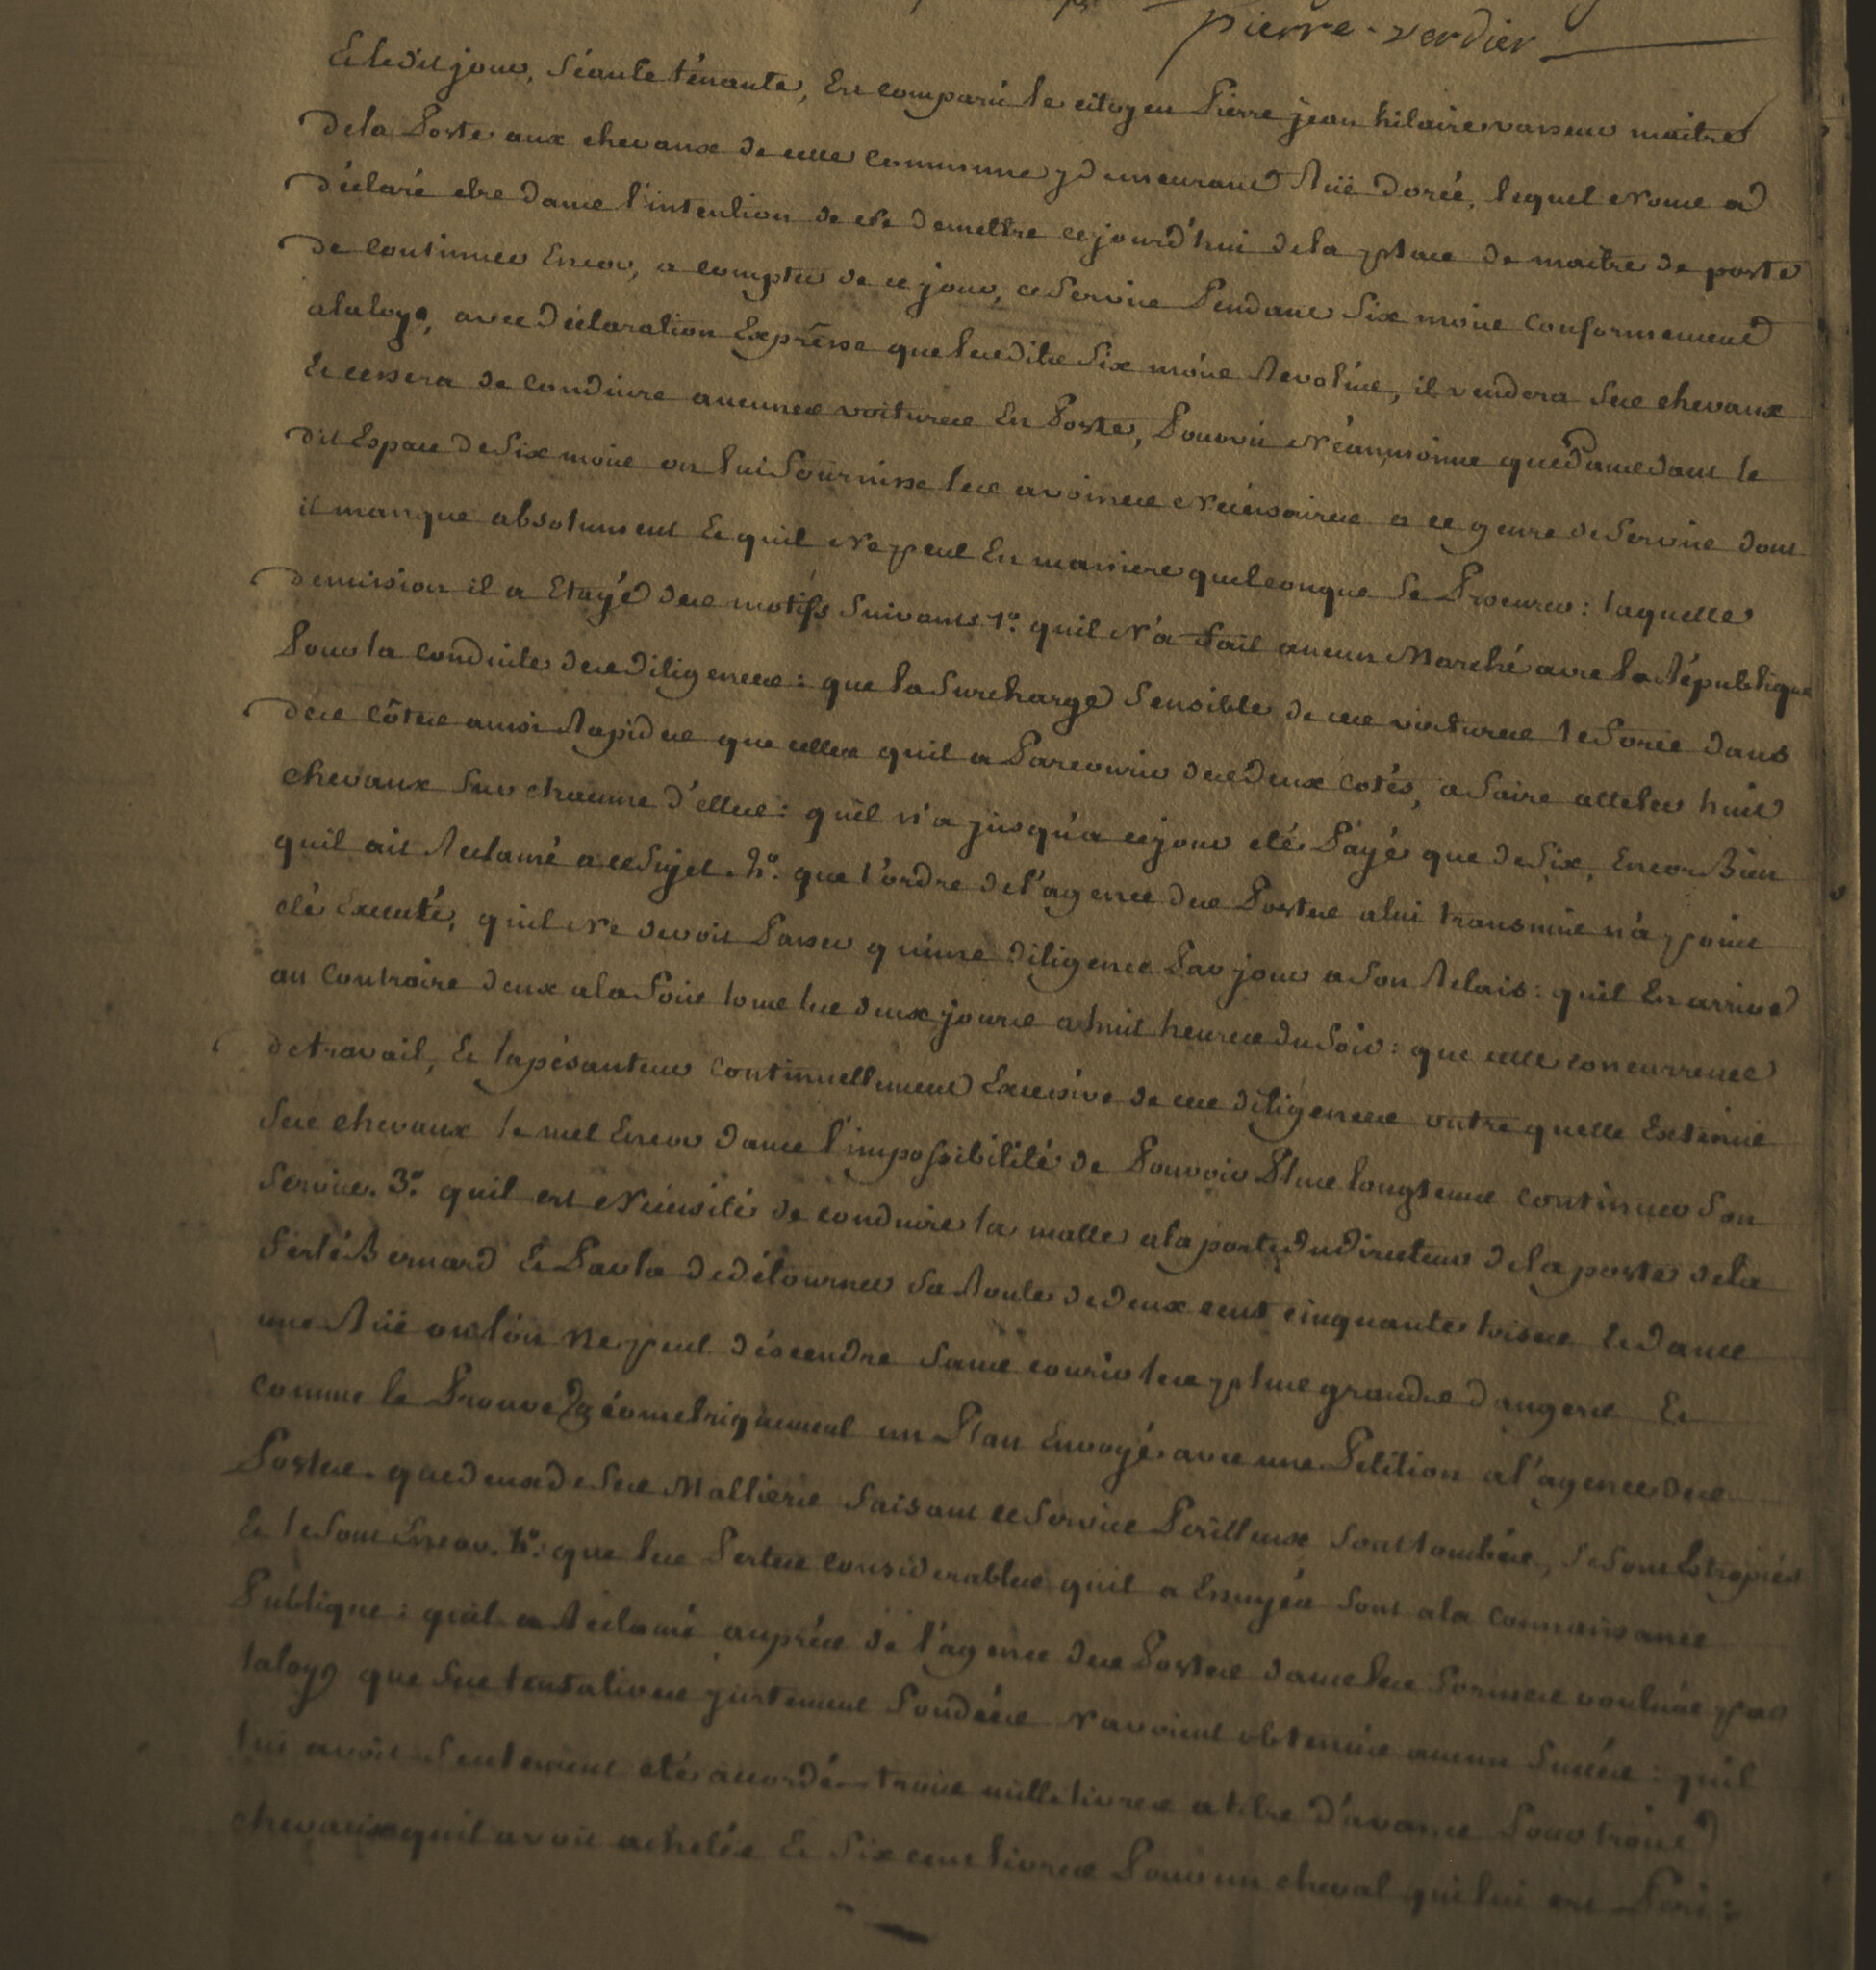 pierre-verdier
Et ledit jour, séante ténante, Est comparu le citoyen Pierre jean hilaire vasseur maitre
de la Poste aux chevaux de cette commune y demeurant Rüe Dorée, lequel Nous a
déclaré etre dans l'intention de se demettre cejourd'hui de la place de maitre de poste
de continuer Encor, a compter de ce jour, ce Service Pendant Six mois conformement
a la loye, avec déclaration Expresse que lesdits Six mois Revolus, il vendera Ses chevaux
Et cessera de conduire aucunes voitures En Poste, Pourvu Néanmoins que Dans le
dit Espace de Six mois on lui Fournisse les avoines Nécéssaires a ce genre de Service dont
il manque absolument Et quil Ne peut En maniere quelconque Se Procurer : laquelle
demission il a Etayé des motifs Suivants 1°. quil N'a Fait aucun Marché avec la République
Pour la conduite des Diligences : que la Surcharge Sensible de ces voitures le Force dans
des côtes aussi Rapides que celles quil a Parcourir des Deux cotés, a Faire atteler huit
chevaux Sur chacune d'elles : quil n'a jusqu'a cejour eté Payé que de Six, Encor Bien
quil ait Reclamé a ce Sujet. 2°. que l'ordre de l'agence des Postes a lui transmis n'a point
eté Executé, quil Ne devoit Passer qu'une Diligence Par jour a Son Relais : quil En arrive
au Contraire deux a la Fois tous les deux jours a huit heures du Soir : que cette concurrence
de travail, Et la pésanteur continuellement Excessive de ces diligences outre quelle Extenue
Ses chevaux le met Encor dans l'impossibilité de Pouvoir Plus longtems continuer Son
Service. 3°. quil est Nécessité de conduire la malle a la porte du Directeur de la poste de la
Ferté Bernard Et Par la de détourner Sa Route de deux cent cinquante toises Et dans
une Rüe ou l'on Ne peut déscendre Sans courir les plus grands dangers Et
comme le Prouve géometriquement un Plan Envoyé avec une Pétition a l'agence des
Postes. que deux de Ses Malliers Faisant ce Service Périlleux Sont tombés, Se Sont Estropiés
Et le Sont Encor. 4°. que les Pertes considerables quil a Essuyés Sont a la connaissance
Publique : quil a Reclamé auprès de l'agence des Postes dans les Formes voulues par
la loye que Ses tentatives justement Fondées N'avoient obtenues aucun Succès : quil
lui avoit Seulement eté accordé trois mille livres a titre d'avance Pour trois
chevaux quil avoit achetés Et Six cent livres Pour un cheval qui lui est Péri :